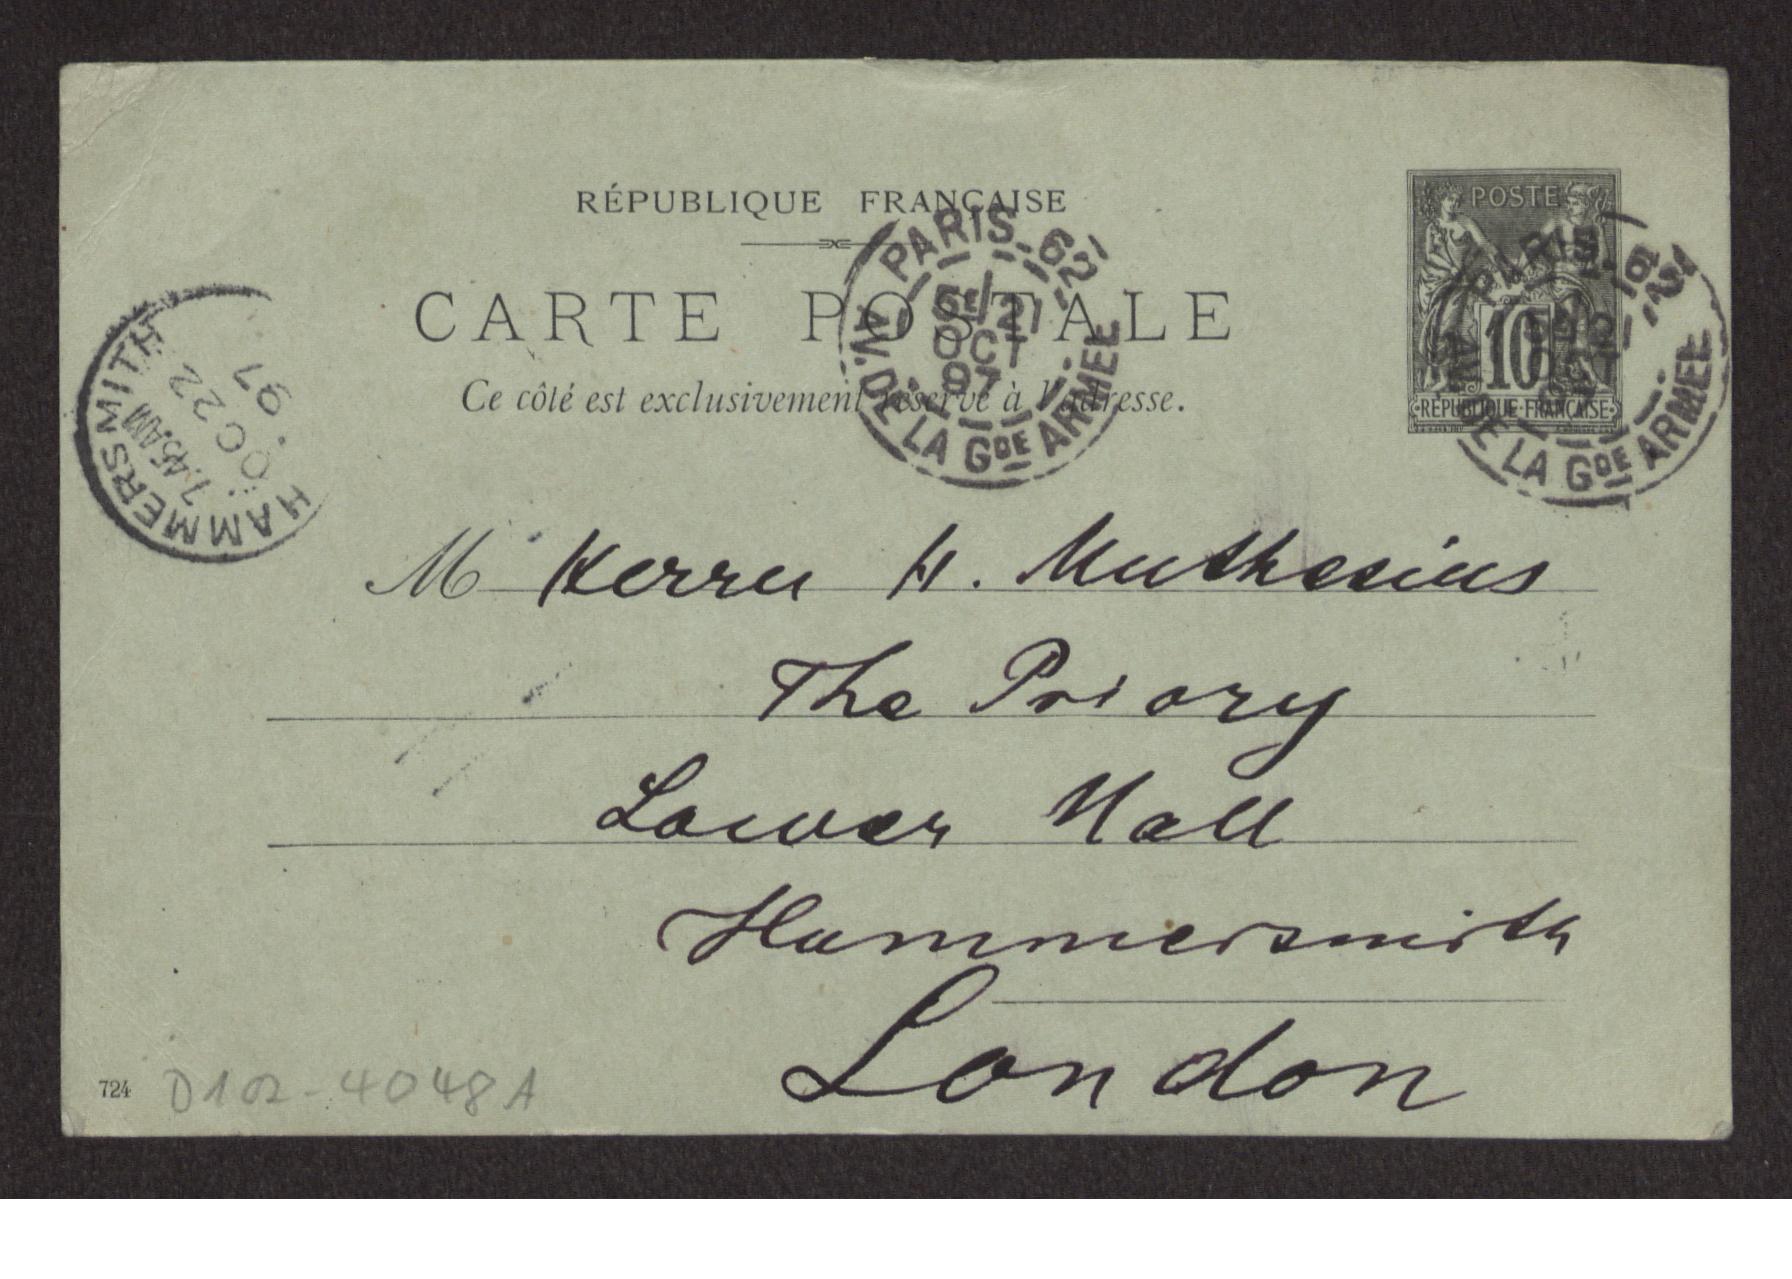 RÉPUBLIQUE FRANÇAISE
CARTE POSTALE
Ce côté est exclusivement réservé à l'adresse.
POSTE
10
RÉPUBLIQUE FRANÇAISE
PARIS. 62
5E/21
OCT
97
AV. DE LA GDE ARMEE
PARIS. 62
AV. DE LA GDE ARMEE
HAMMERSMITH
7.45AM
OC 22
97
M Herrn H. Muthesius
The Priory
Lower Mall
Hammersmith
London
724
D102-4048A